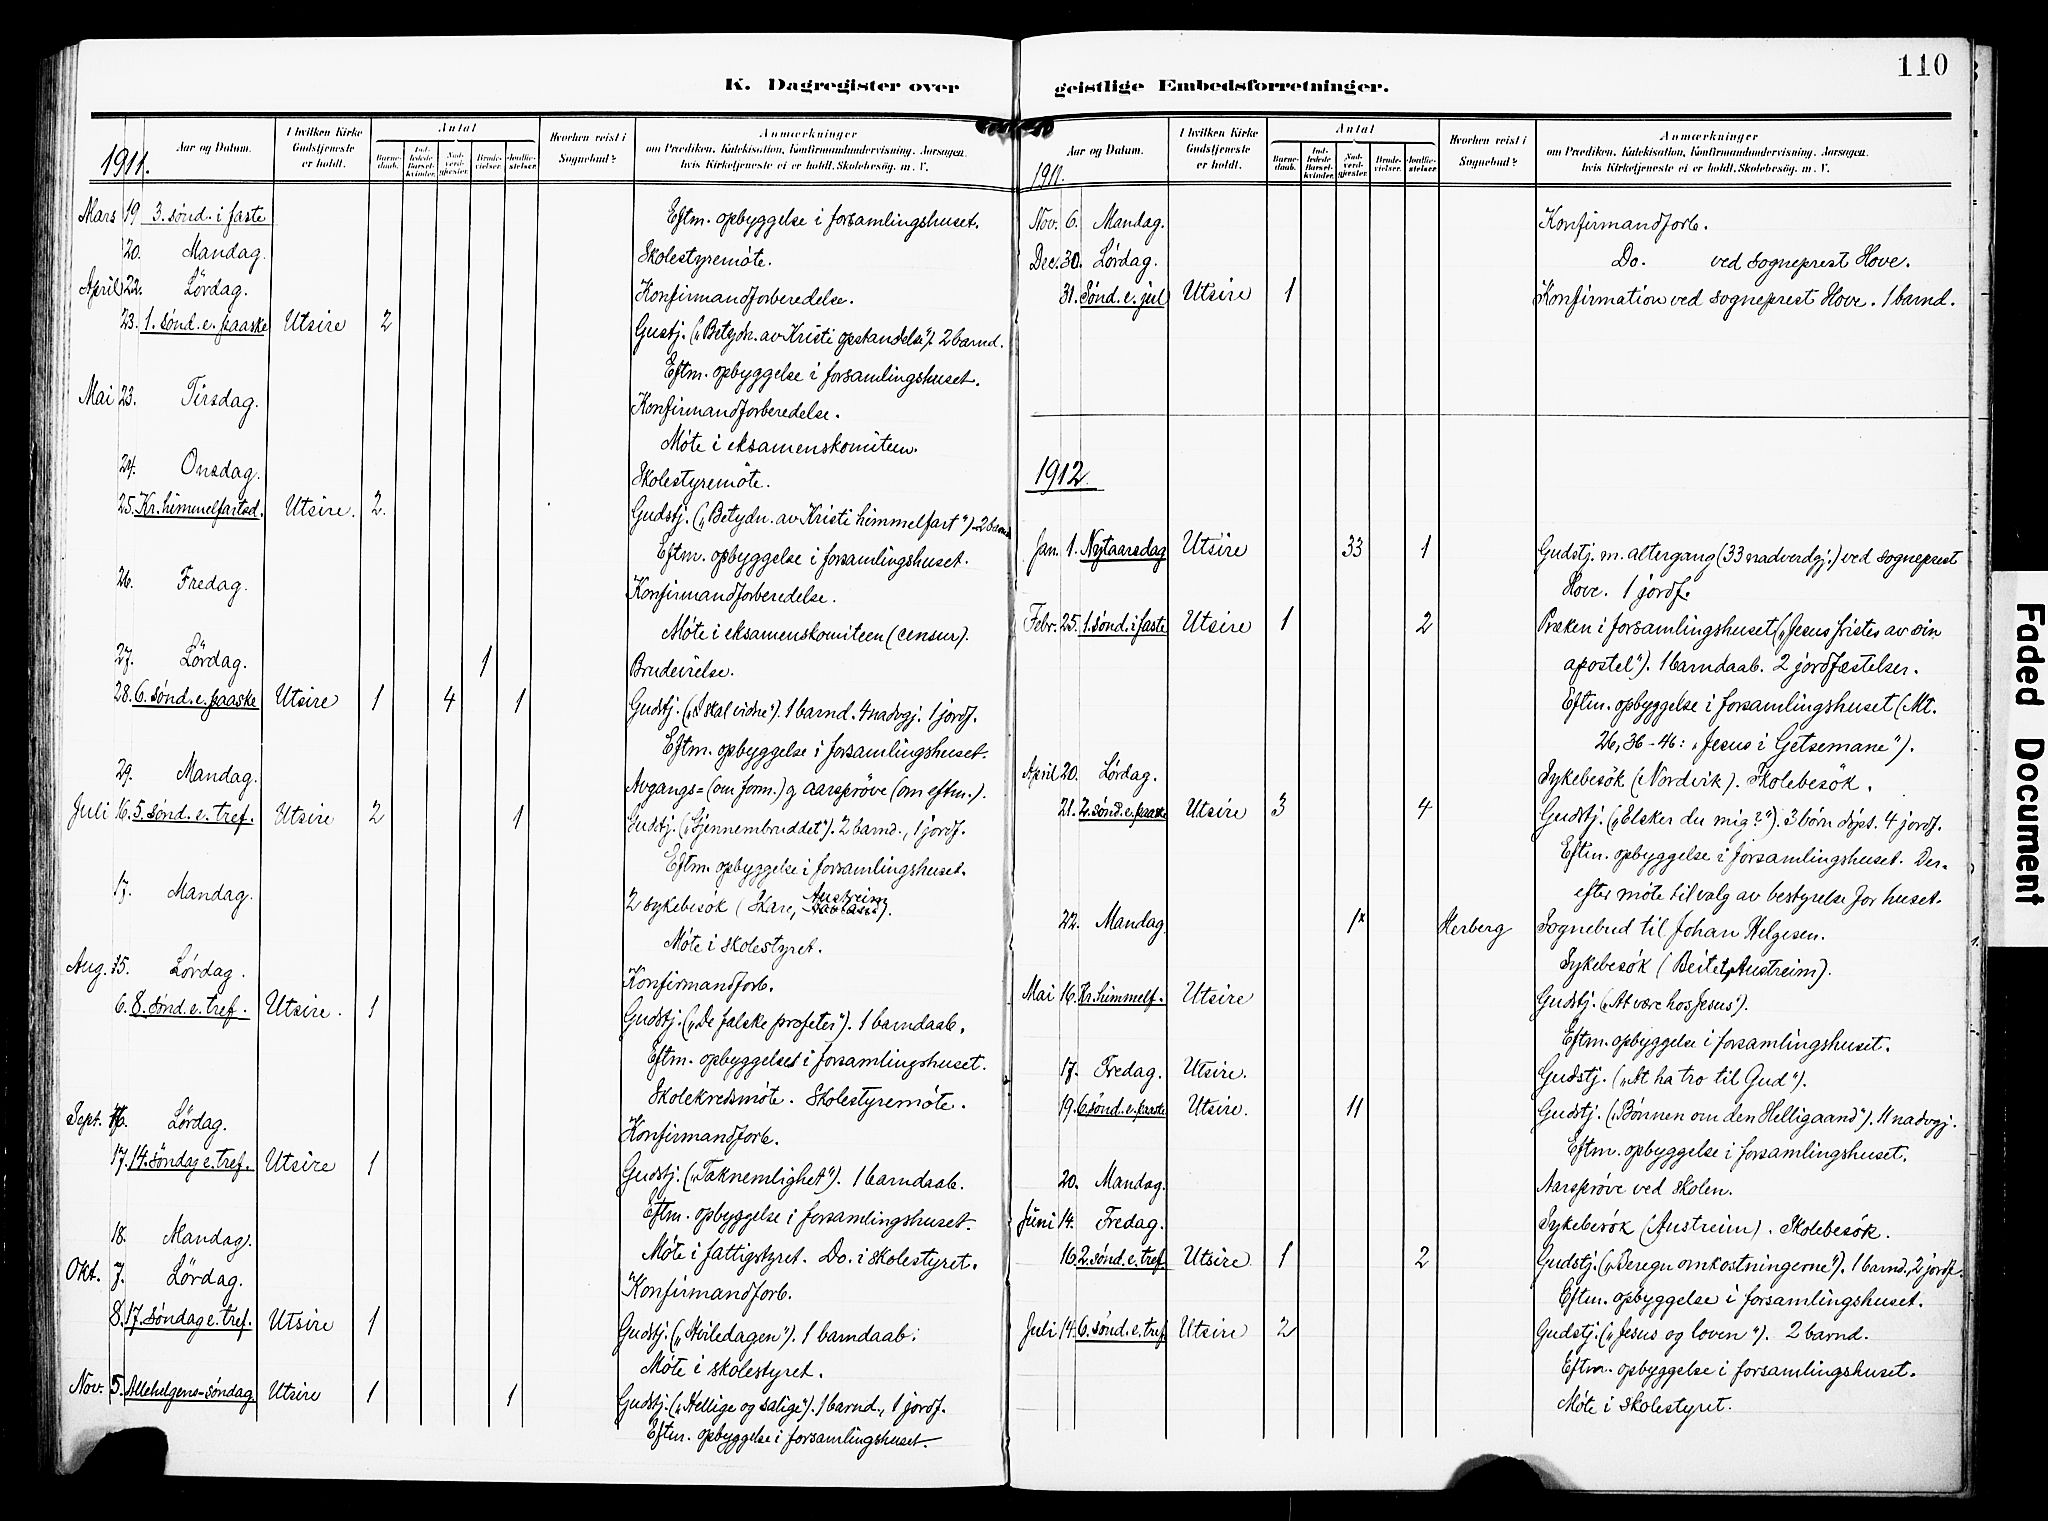 K. Dagregister over
1911.
Aar og Datum.
I hvilken Kirke Gudstjeneste er holdt.
Antal
Barne-daab.
Ind-ledede Barsel-kvinder.
Nad-verd-gjester.
Brude-vielser.
Jordfæ-stelser.
Hvorhen reist i Sognebud?
Anmærkninger
om Prædiken. Katekisation, Konfirmandundervisning. Aarsagen,
hvis Kirketjeneste ei er holdt. Skolebesøg. m. V.
Mars 19 3. sønd. i faste Eftm. opbyggelse i forsamlingshuset.
20. Mandag. Skolestyremøte.
April 22. Lördag. Konfirmandforberedelse.
23. 1. sønd. e. paaske Utsire 2 Gustj. („Betydn. av Kristi opstandelse"). 2 barnd.
Eftm. opbyggelse i forsamlingshuset.
Mai 23. Tirsdag. Konfirmandforberedelse.
Møte i eksamenskomiteen.
24. Onsdag. Skolestyremøte.
25. Kr. himmelfartsd. Utsire. 2. Gudstj. („Betydn. av Kristi himmelfart"). 2 barnd.
Eftm. opbyggelse i forsamlingshuset.
26. Fredag. Konfirmandforberedelse.
Møte i eksamenskomiteen (censur).
27. Lördag. 1 Brudevielse.
28. 6. sønd. e. paaske Utsire 1 4 1 Gudstj. („I skal vidne"). 1 barnd. 4 nadvgj. 1 jordf.
Eftm. opbyggelse i forsamlingshuset.
29. Mandag. Avgangs= (om form.) og aarsprøve (om eftm.).
Juli 16. 5. sønd. e. tref. Utsire 2 1 Gudstj. („Gjennembruddet"). 2 barnd., 1 jordf.
Eftm. opbyggelse i forsamlingshuset.
17. Mandag. 2 sykebesøk (Skare, Austreim).
Møte i skolestyret.
Aug. 5. Lördag. Konfirmandforb.
6. 8. sønd. e. tref. Utsire. 1 Gudstj. („De falske profeter"). 1 barndaab.
Eftm. opbyggelses i forsamlingshuset.
Skolekredsmøte. Skolestyremøte.
Sept. 16. Lördag. Konfirmandforb.
17. 14. søndag e. tref. Utsire 1 Gudstj. („Taknemlighet"). 1 barndaab.
Eftm. opbyggelse i forsamlingshuset.
18. Mandag. Møte i fattigstyret. Do. i skolestyret.
Okt. 7. Lördag. Konfirmandforb.
8. 17. søndag e. tref. Utsire 1 Gudstj. („Hviledagen"). 1 barndaab.
Møte i skolestyret.
Nov. 5. Allehelgens-søndag Utsire 1 1 Gudstj. („Hellige og salige"). 1 barnd., 1 jordf.
Eftm. opbyggelse i forsamlingshuset.
110
geistlige Embedsforretninger.
1911.
Aar og Datum.
I hvilken Kirke Gudstjeneste er holdt.
Antal
Barne-daab.
Ind-ledede Barsel-kvinder.
Nad-verd-gjester.
Brude-vielser.
Jordfæ-stelser.
Hvorhen reist i Sognebud?
Anmærkninger
om Prædiken. Katekisation, Konfirmandundervisning. Aarsagen.
hvis Kirketjeneste ei er holdt. Skolebesøg. m. V.
Nov. 6. Mandag. Konfirmandforb.
Dec. 30. Lørdag. Do. ved sogneprest Hove.
31. Sønd. e. jul Utsire 1 Konfirmation ved sogneprest Hove. 1 barnd.
1912.
Jan. 1. Nytaarsdag Utsire 33 1 Gudstj. m. altergang (33 nadverdgj.) ved sogneprest
Hove. 1 jordf.
Febr. 25. 1. sønd. i faste Utsire 1 2 Præken i forsamlingshuset („Jesus fristes av sin
apostel"). 1 barndaab. 2 jordfæstelser.
Eftm. opbyggelse i forsamlingshuset (Mt.
26, 36-46: „Jesus i Getsemane").
April 20. Lørdag. Sykebesök (Nordvik). Skolebesök.
21. 2. sønd. e. paaske Utsire 3 4 Gudstj. („Elsker du mig?"). 3 børn døpt. 4 jordf.
Eftm. opbyggelse i forsamlingshuset. Der-
efter møte til valg av bestyrelse for huset.
22. Mandag 1x Herberg Sognebud til Johan Helgesen.
Sykebesök (Beitet, Austreim).
Mai 16. Kr. himmelf. Utsire Gudstj. („At være hos Jesus").
Eftm. opbyggelse i forsamlingshuset.
17. Fredag. Utsire. Gudstj. („At ha tro til Gud").
19. 6. sönd. e. paaske Utsire. 11 Gudstj. („Bønnen om den Helligaand"). 11 nadvgj.
Eftm. opbyggelse i forsamlingshuset.
20. Mandag. Aarsprøve ved skolen.
Juni 14. Fredag. Sykebesök (Austreim). Skolebesök.
16. 2. sønd. e. tref. Utsire 1 2 Gudstj. („Beregn omkostningerne"). 1 barnd., 2 jordf.
Eftm. opbyggelse i forsamlingshuset.
Juli 14. 6. sønd. e. tref. Utsire 2 Gudstj. („Jesus og loven"). 2 barnd.
Eftm. opbyggelse i forsamlingshuset.
Møte i skolestyret.
Faded Document